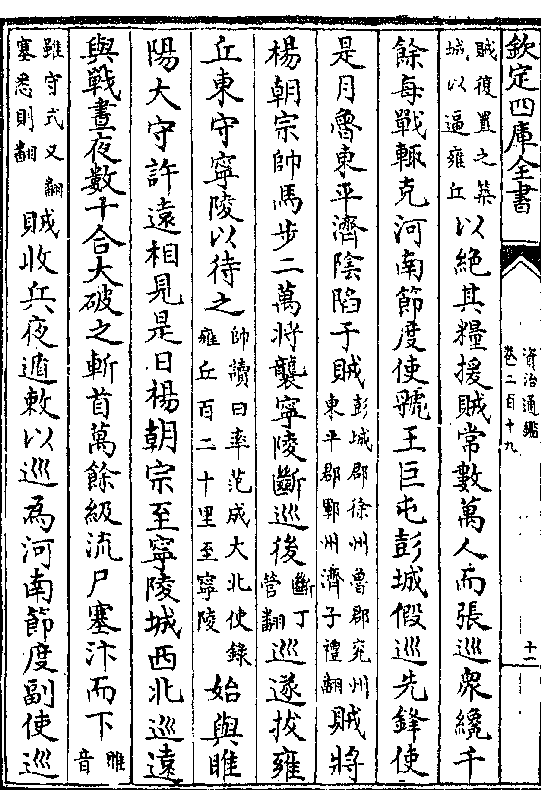 欽定四庫全書
資治通鑑
卷二百十九
十一
賊復置之築
城以逼雍丘
以絶其糧援賊常數萬人而張巡衆纔千
餘每戰輒克河南節度使虢王巨屯彭城假巡先鋒使
是月魯東平濟陰陷于賊
彭城郡徐州魯郡兖州
東平郡鄆州濟子禮翻
賊將
楊朝宗帥馬步二萬將襲寧陵斷巡後
斷丁
管翻
巡遂拔雍
丘東守寧陵以待之
帥讀曰率范成大北使錄
雍丘百二十里至寧陵
始與睢
陽大守許遠相見是日楊朝宗至寧陵城西北巡遠
與戰晝夜數十合大破之斬首萬餘級流尸塞汴而下
睢
音
雖守式又翻
塞悉則翻
賊收兵夜遁敕以巡為河南節度副使巡